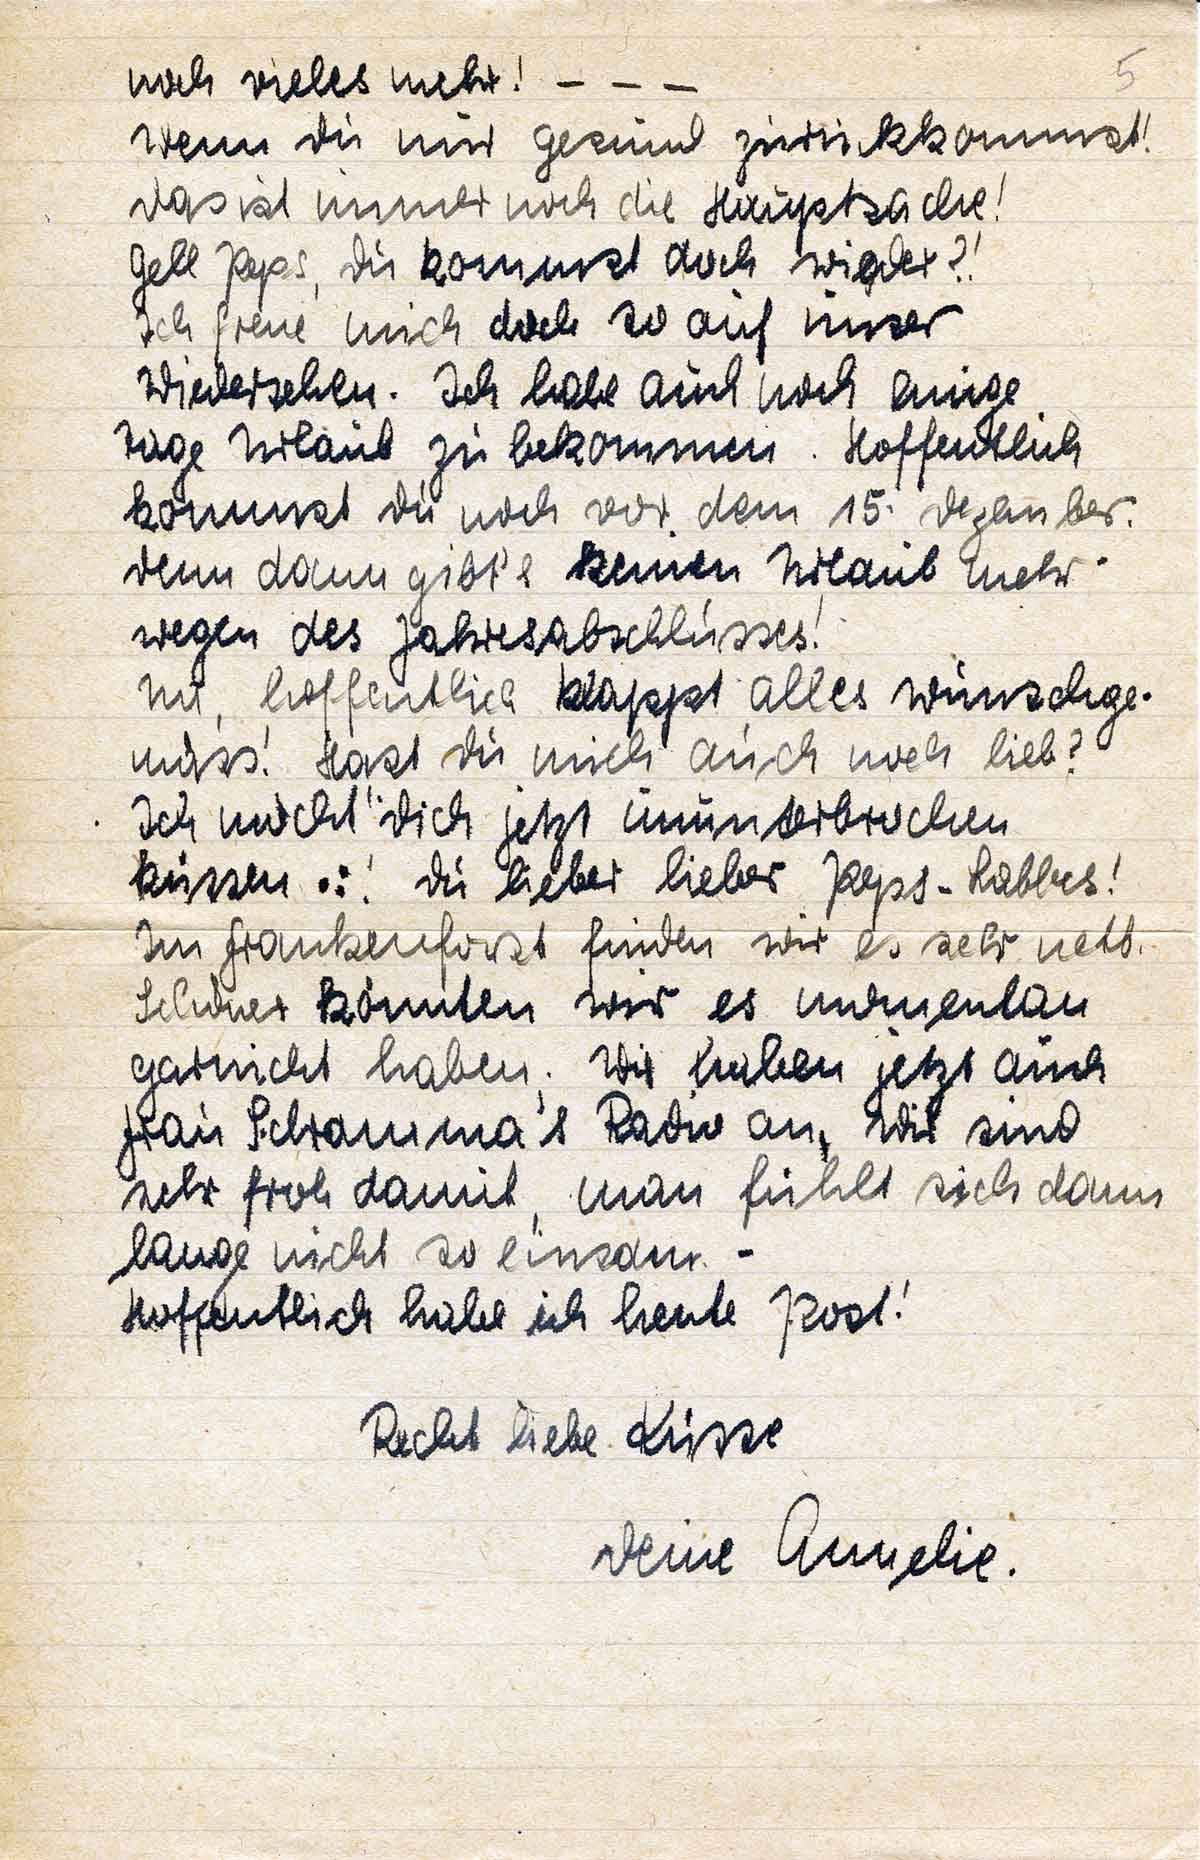 5
noch vieles mehr! – – –
Wenn Du nur gesund zurückkommst!
Das ist immer noch die Hauptsache!
Gell Peps, Du kommst doch wieder?!
Ich freue mich doch so auf unser
Wiedersehen. Ich habe auch noch einige
Tage Urlaub zu bekommen. Hoffentlich
kommst Du noch vor dem 15. Dezember.
denn dann gibt's keinen Urlaub mehr
wegen des Jahresabschlusses!
Nu, hoffentlich klappt alles wunschge-
mäss! Hast Du mich auch noch lieb?
Ich möcht' Dich jetzt ununterbrochen
küssen ..! Du lieber lieber Peps-Labbes!
Im Frankenforst finden wir es sehr nett.
Schöner könnten wir es momentan
garnicht haben. Wir haben jetzt auch
Frau Schramma's Radio an, Wir sind
sehr froh damit, man fühlt sich dann
lange nicht so einsam. –
Hoffentlich habe ich heute Post!
Recht liebe Küsse
Deine Annelie.